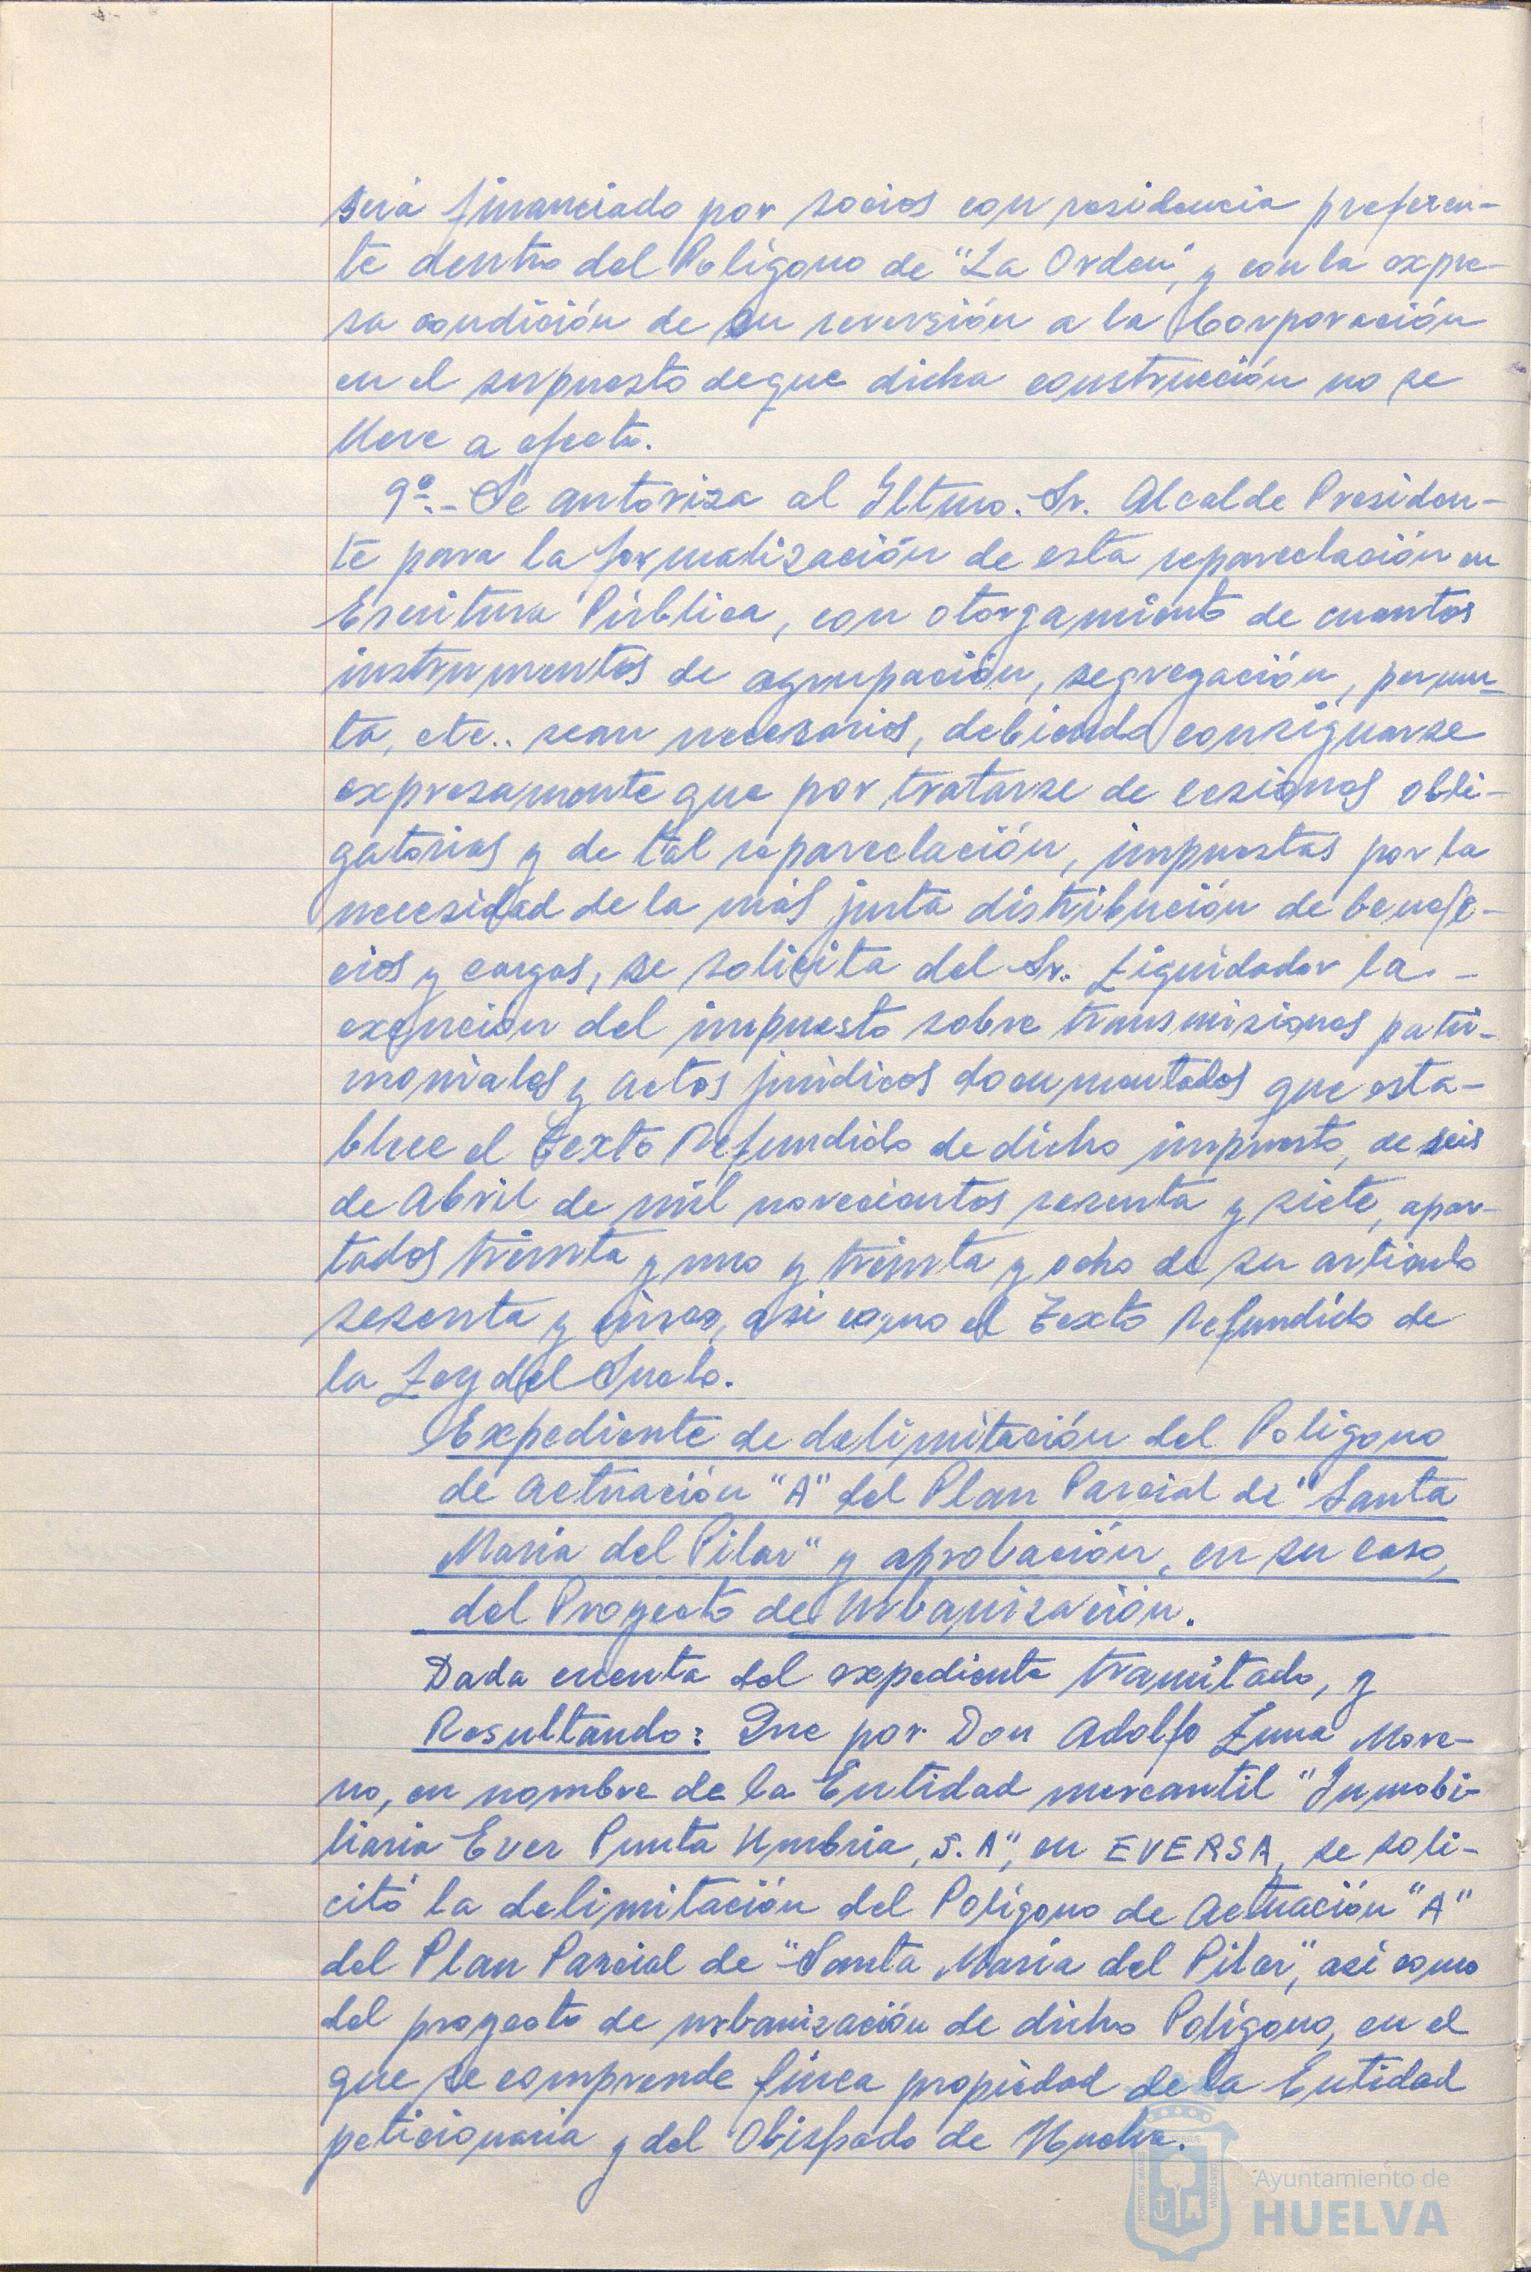 será financiado por socios con residencia preferen-
te dentro del Polígono de "La Orden", y con la expre-
sa condición de su reversión a la Corporación
en el supuesto de que dicha construcción no se
lleve a efecto.
9º.- Se autoriza al Iltmo. Sr. Alcalde Presiden-
te para la formalización de esta reparcelación en
Escritura Pública, con otorgamiento de cuantos
instrumentos de agrupación, segregación, permu-
ta, etc.. sean necesarios, debiendo consignarse
expresamente que por tratarse de cesiones obli-
gatorias y de tal reparcelación, impuestas por la
necesidad de la más justa distribución de benefi-
cios y cargas, se solicita del Sr. Liquidador la. -
exención del impuesto sobre transmisiones patri-
moniales y actos jurídicos documentados que esta-
blece el Texto Refundido de dicho impuesto, de seis
de Abril de mil novecientos sesenta y siete, apar-
tados treinta y uno y treinta y ocho de su artículo
sesenta y cinco, asi como el Texto Refundido de
la Ley del Suelo.
Expediente de delimitación del Polígono
de Actuación "A" del Plan Parcial de "Santa
Maria del Pilar" y aprobación, en su caso,
del Proyecto de Urbanización.
Dada cuenta del expediente tramitado, y
Resultando: Que por Don Adolfo Luna More-
no, en nombre de la Entidad mercantil "Inmobi-
liaria Ever Punta Umbria, S.A", en EVERSA, se soli-
citó la delimitación del Polígono de Actuación "A"
del Plan Parcial de "Santa María del Pilar", asi como
del proyecto de urbanización de dicho Polígono, en el
que se comprende finca propiedad de la Entidad
peticionaria y del Obispado de Huelva.
Ayuntamiento de
HUELVA